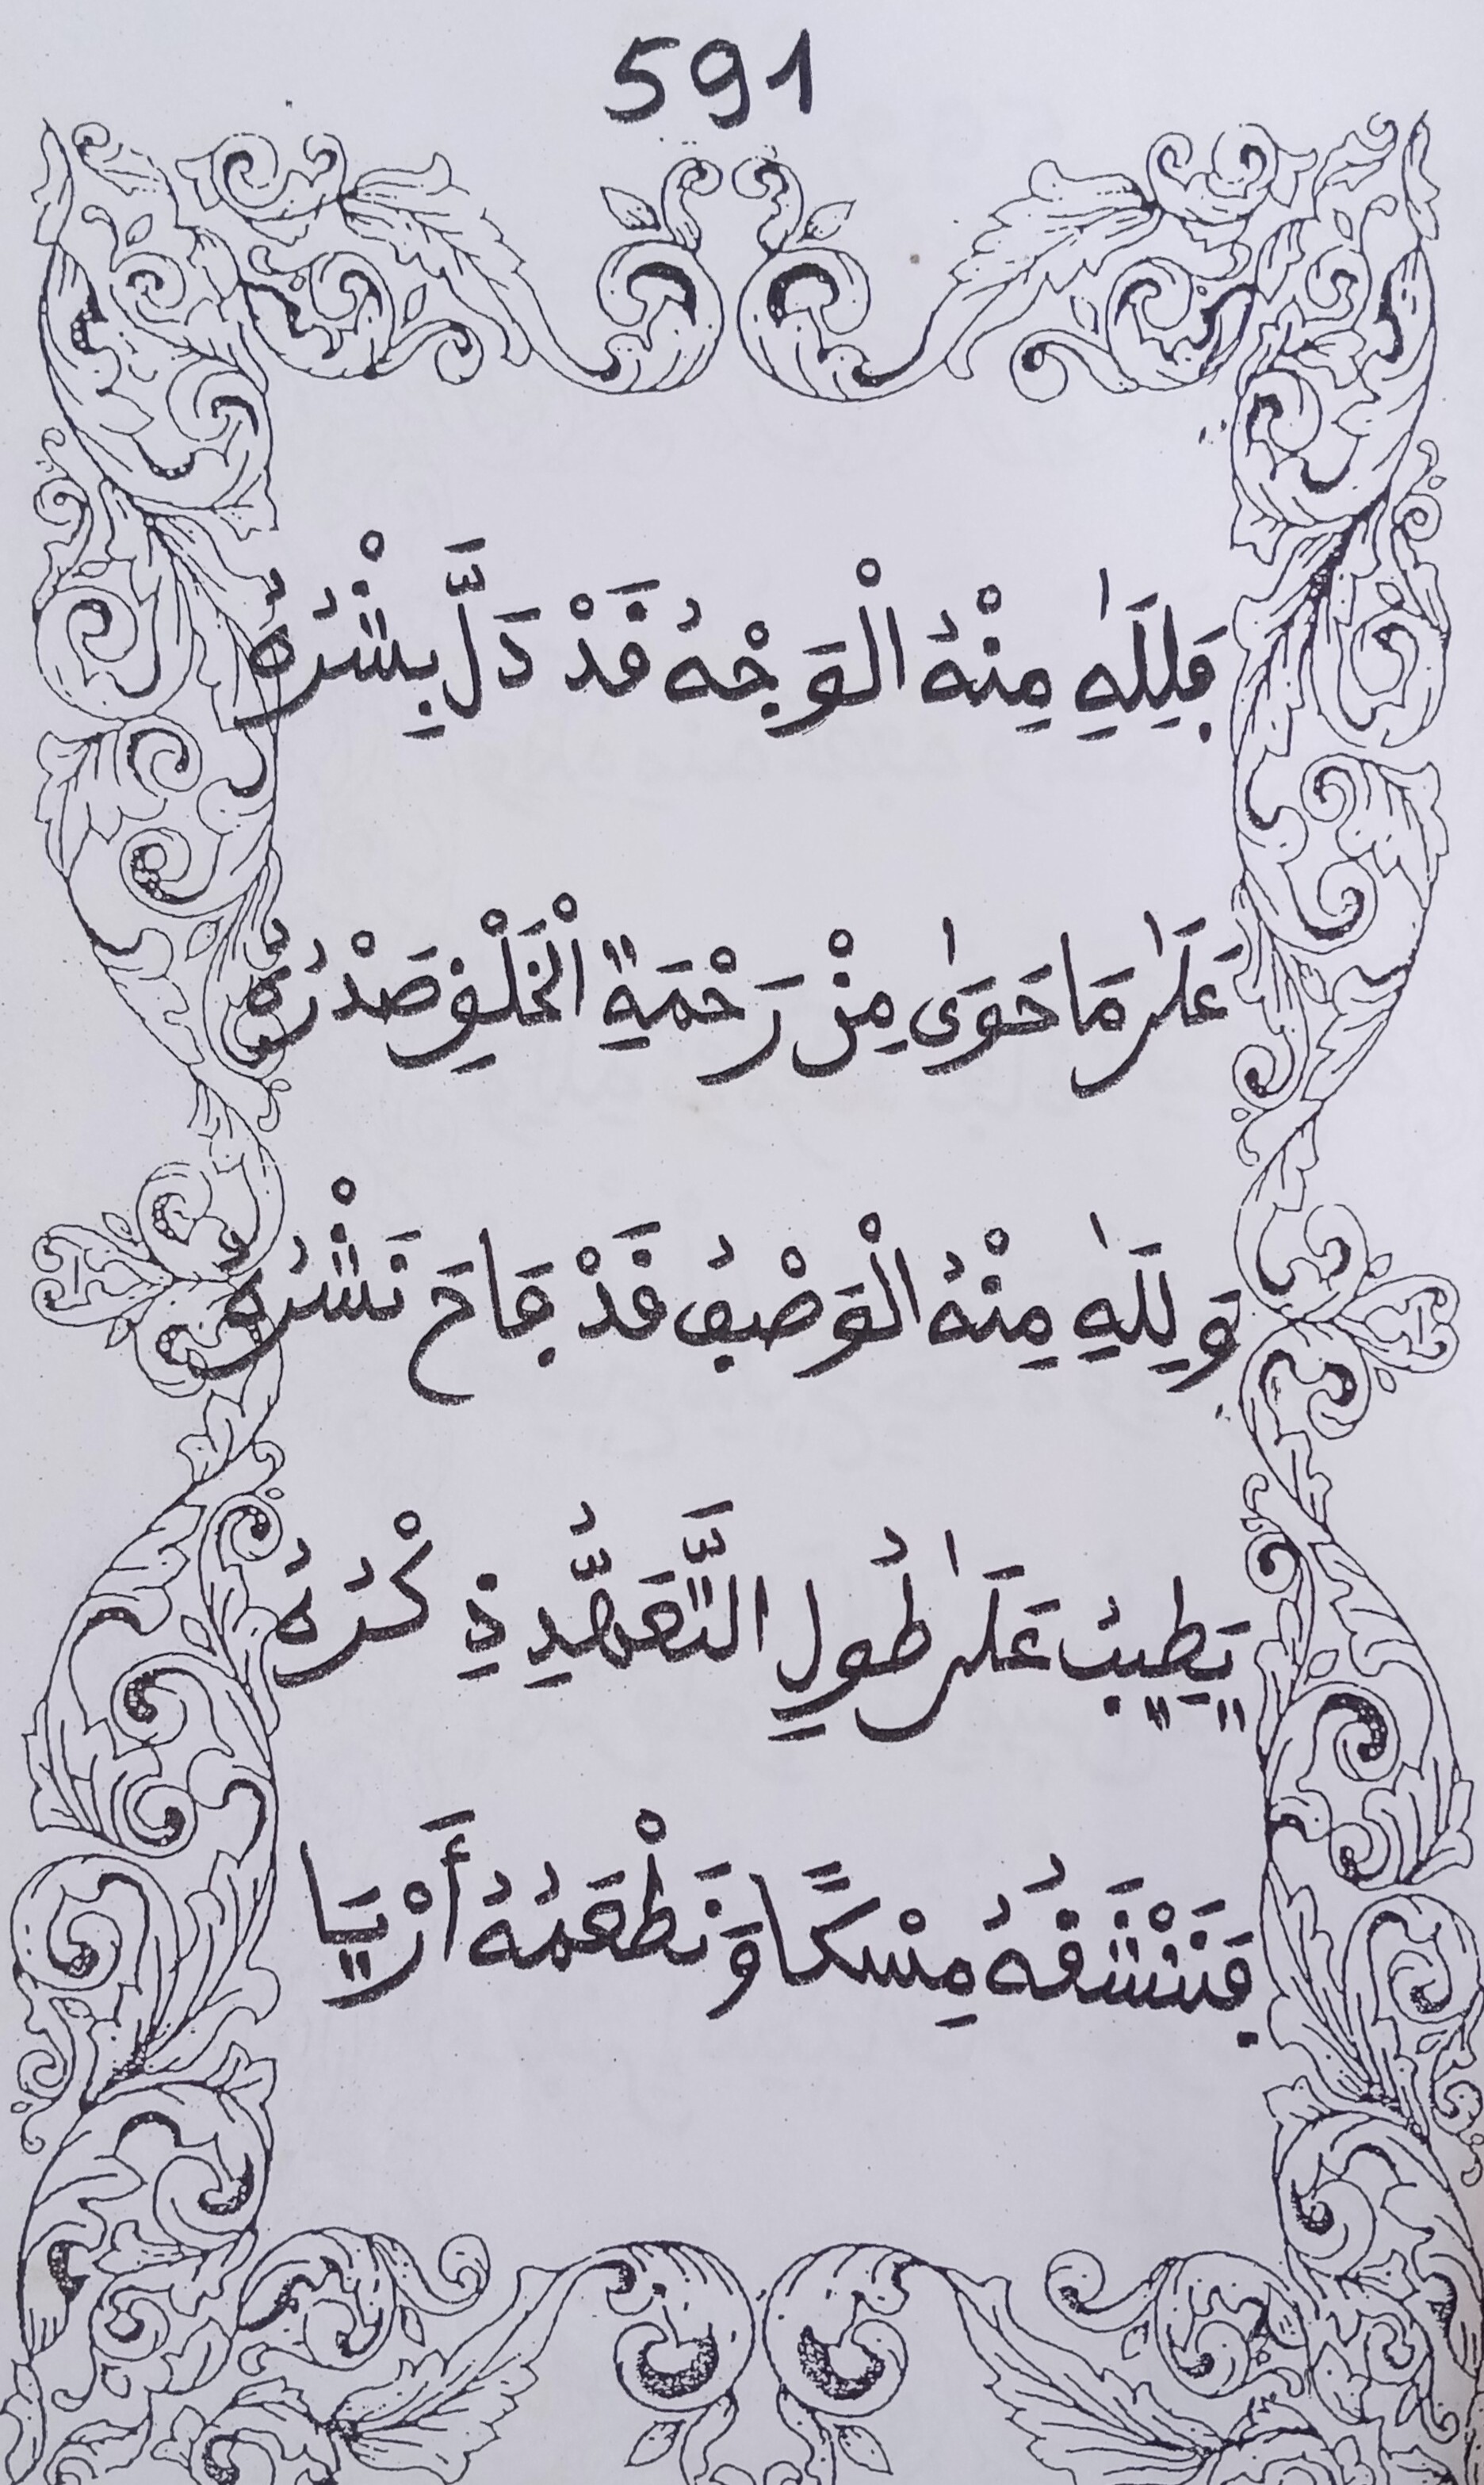 591
فَلِلَّهِ مِنْهُ الْوَجْهُ قَدْ دَلَّ بِشْرُهُ
عَلَىٰ مَا حَوَىٰ مِنْ رَحْمَةِ الْخَلْقِ صَدْرُهُ
وَلِلَّهِ مِنْهُ الْوَصْفُ قَدْ فَاحَ نَشْرُهُ
يَطِيبُ عَلَىٰ طُولِ التَّعَهُّدِ ذِكْرُهُ
فَنَنْشَقُهُ مِسْكًا وَنَطْعَمُهُ أَرْيَا